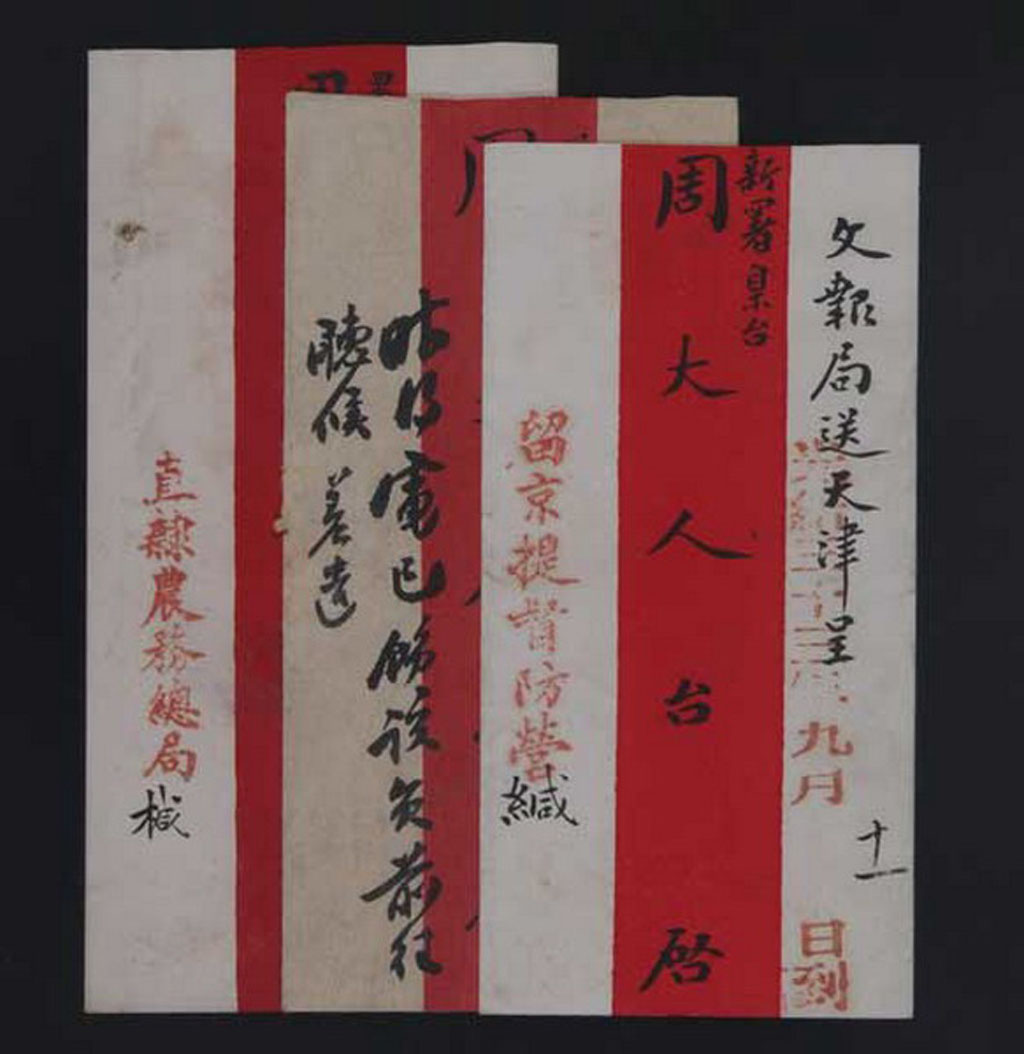 文報局送天津呈
光緒三十三年九月十一日到
新署臬台
周大人台啓
留京提督防營緘
昨得電已飭該員前往
聽候差遣
直隸農務總局椷